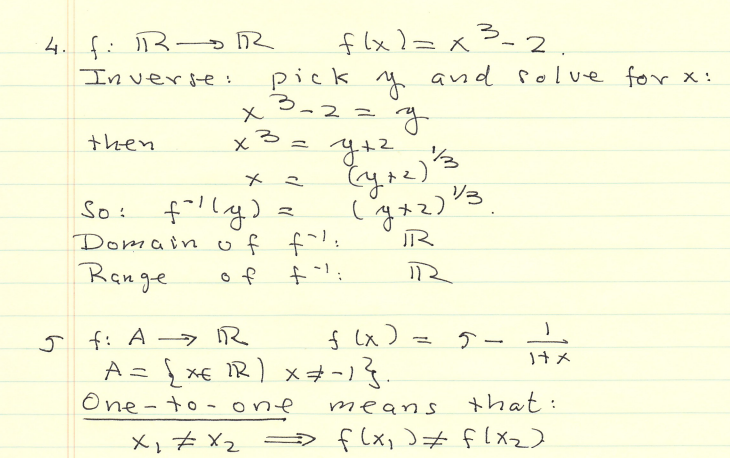 4. f: ℝ → ℝ f(x) = x³ - 2.
Inverse: pick y and solve for x:
x³ - 2 = y
then x³ = y + 2
x = (y+2)^1/3
So: f⁻¹(y) = (y+2)^1/3.
Domain of f⁻¹: ℝ
Range of f⁻¹: ℝ
5 f: A → ℝ f(x) = 5 - 1/(1+x)
A = {x ∈ ℝ | x ≠ -1}.
One-to-one means that:
x₁ ≠ x₂ ⟹ f(x₁) ≠ f(x₂)